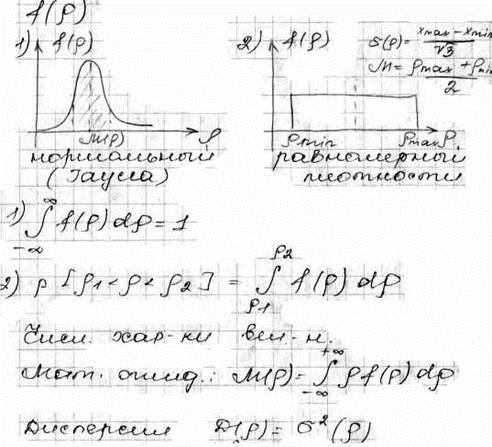 f(ρ)
1) f(ρ)
M(ρ) ρ
нормальный
(Гаусса)
2) f(ρ)
σ(ρ) = xmax − xmin / √3
M = ρmax + ρmin / 2
ρmin ρmax ρ
равномерный
плотности
1) ∫_{-∞}^{∞} f(ρ) dρ = 1
2) p [ρ1 < ρ < ρ2] = ∫_{ρ1}^{ρ2} f(ρ) dρ
Числ. хар-ки вел-н.
Мат. ожид.: M(ρ) = ∫_{-∞}^{+∞} ρ f(ρ) dρ
Дисперсия D(ρ) = σ²(ρ)